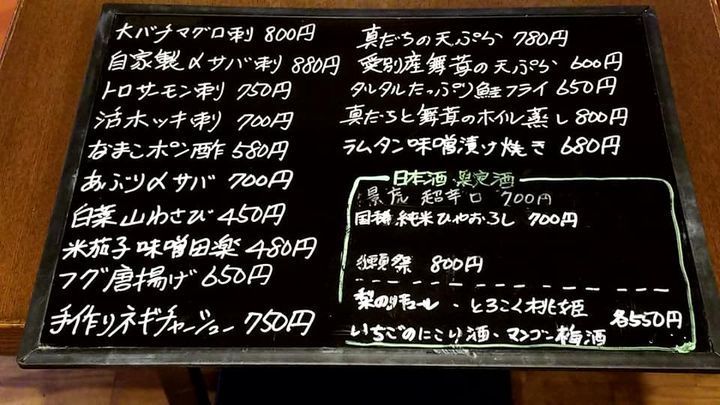 大バチマグロ刺 800円
自家製〆サバ刺 880円
トロサーモン刺 750円
活ホッキ刺 700円
なまこポン酢 580円
あぶり〆サバ 700円
白菜山わさび 450円
米茄子味噌田楽 480円
フグ唐揚げ 650円
手作りネギチャーシュー 750円
真だちの天ぷら 780円
愛別産舞茸の天ぷら 600円
タルタルたっぷり鮭フライ 650円
真だちと舞茸のホイル蒸し 800円
ラムタン味噌漬け焼き 680円
日本酒 限定酒
景虎 超辛口 700円
国稀 純米ひやおろし 700円
獺祭 800円
梨のリキュール・とろこく桃姫
いちごのにごり酒・マンゴー梅酒
各550円